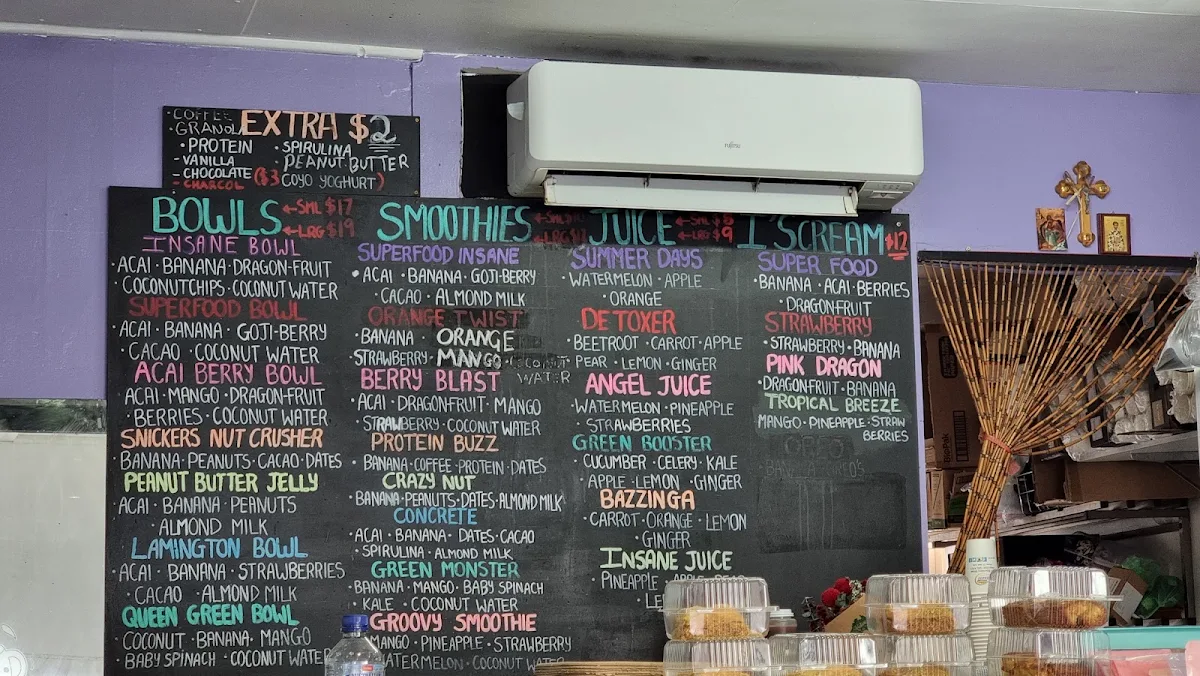 COFFEE
GRANOLA
EXTRA $2
• PROTEIN
- VANILLA
- CHOCOLATE
- CHARCOL
• SPIRULINA
PEANUT BUTTER
($3 COYO YOGHURT)
FUJITSU
BOWLS
←SML $17
←LRG $19
INSANE BOWL
• ACAI • BANANA • DRAGON-FRUIT
• COCONUTCHIPS • COCONUT WATER
SUPERFOOD BOWL
• ACAI • BANANA • GOJI-BERRY
• CACAO • COCONUT WATER
ACAI BERRY BOWL
ACAI • MANGO • DRAGON-FRUIT
• BERRIES • COCONUT WATER
SNICKERS NUT CRUSHER
BANANA • PEANUTS • CACAO • DATES
PEANUT BUTTER JELLY
• ACAI • BANANA • PEANUTS
ALMOND MILK
LAMINGTON BOWL
• ACAI • BANANA • STRAWBERRIES
CACAO • ALMOND MILK
QUEEN GREEN BOWL
COCONUT • BANANA • MANGO
• BABY SPINACH • COCONUT WATER
SMOOTHIES
SUPERFOOD INSANE
• ACAI • BANANA • GOJI-BERRY
CACAO • ALMOND MILK
ORANGE TWIST
BANANA • ORANGE
• STRAWBERRY • MANGO • COCONUT
WATER
BERRY BLAST
ACAI • DRAGONFRUIT • MANGO
STRAWBERRY • COCONUT WATER
PROTEIN BUZZ
• BANANA • COFFEE • PROTEIN • DATES
CRAZY NUT
• BANANA • PEANUTS • DATES • ALMOND MILK
CONCRETE
• ACAI • BANANA • DATES • CACAO
• SPIRULINA • ALMOND MILK
GREEN MONSTER
BANANA • MANGO • BABY SPINACH
KALE • COCONUT WATER
GROOVY SMOOTHIE
MANGO • PINEAPPLE • STRAWBERRY
WATERMELON • COCONUT WATER
JUICE
←LRG $9
SUMMER DAYS
WATERMELON • APPLE
• ORANGE
DETOXER
• BEETROOT • CARROT • APPLE
PEAR • LEMON • GINGER
ANGEL JUICE
• WATERMELON • PINEAPPLE
• STRAWBERRIES
GREEN BOOSTER
CUCUMBER • CELERY • KALE
• APPLE • LEMON • GINGER
BAZZINGA
• CARROT • ORANGE • LEMON
GINGER
INSANE JUICE
PINEAPPLE • APPLE
I'SCREAM $12
SUPER FOOD
• BANANA • ACAI • BERRIES
• DRAGONFRUIT
STRAWBERRY
• STRAWBERRY • BANANA
PINK DRAGON
• DRAGONFRUIT • BANANA
TROPICAL BREEZE
MANGO • PINEAPPLE • STRAW
BERRIES